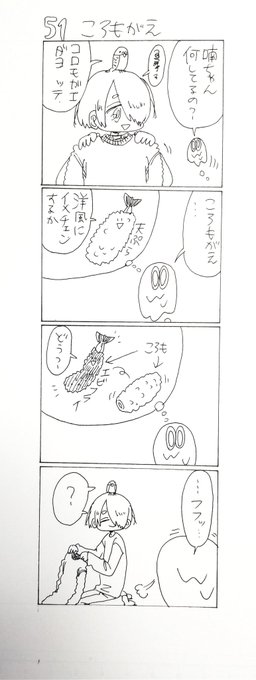 51 ころもがえ
喃ちゃん
何してるの?
コロモガエ
ダヨッテ
ころもがえ
…
天ぷら
洋風に
イメチェン
するか
ころも
エビ
どうっ?
…フフッ…
?